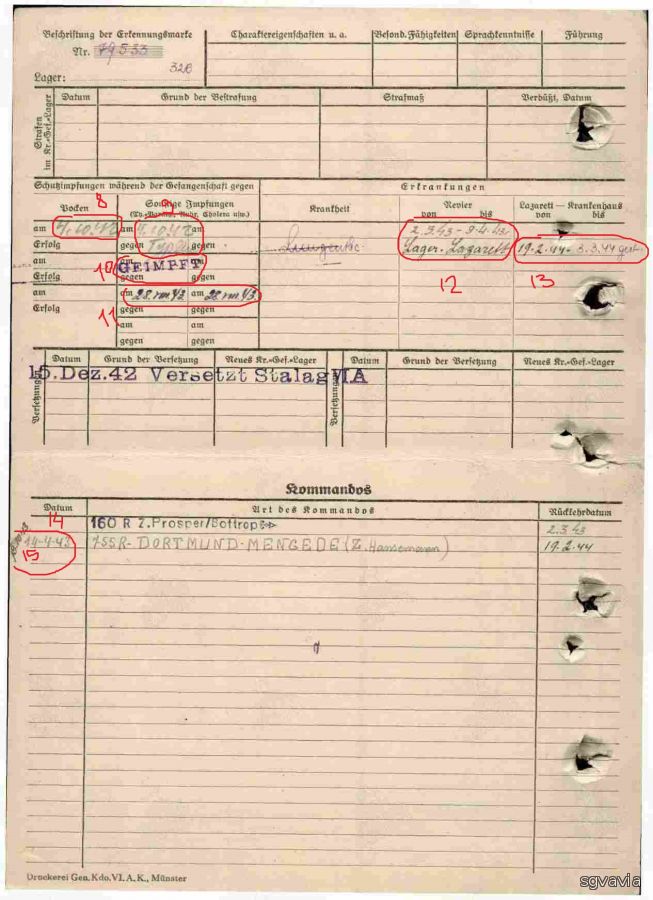 Beschriftung der Erkennungsmarke
Nr. 79533
326
Lager:
Charaktereigenschaften u. a.
Besond. Fähigkeiten
Sprachkenntnisse
Führung
Strafen im Kr.-Gef.-Lager
Datum
Grund der Bestrafung
Strafmaß
Verbüßt, Datum
Schutzimpfungen während der Gefangenschaft gegen
Erkrankungen
8
9
Pocken
Sonstige Impfungen
(Ty.-Paratyph., Ruhr, Cholera usw.)
Krankheit
Revier
von bis
Lazarett — Krankenhaus
von bis
am 7.10.42 am 7.10.42 am
2.3.43 - 9.4.43
Erfolg gegen gegen
Lager-Lazarett
19.2.44 - 3.3.44
am am am
10 GEIMPFT
Erfolg gegen gegen
12
13
am am 28. 43 am 28. 43
Erfolg gegen gegen
11
am am
gegen gegen
Versetzungen
Datum
Grund der Versetzung
Neues Kr.-Gef.-Lager
Versetzungen
Datum
Grund der Versetzung
Neues Kr.-Gef.-Lager
15. Dez. 42 Versetzt Stalag VI A
Kommandos
Datum
Art des Kommandos
Rückkehrdatum
14
160 R Z. Prosper/Bottrop
2.3.43
14-4-43
755R-DORTMUND-MENGEDE (Z. Hansemann)
19.2.44
15
Druckerei Gen. Kdo. VI. A. K., Münster
sgvavia